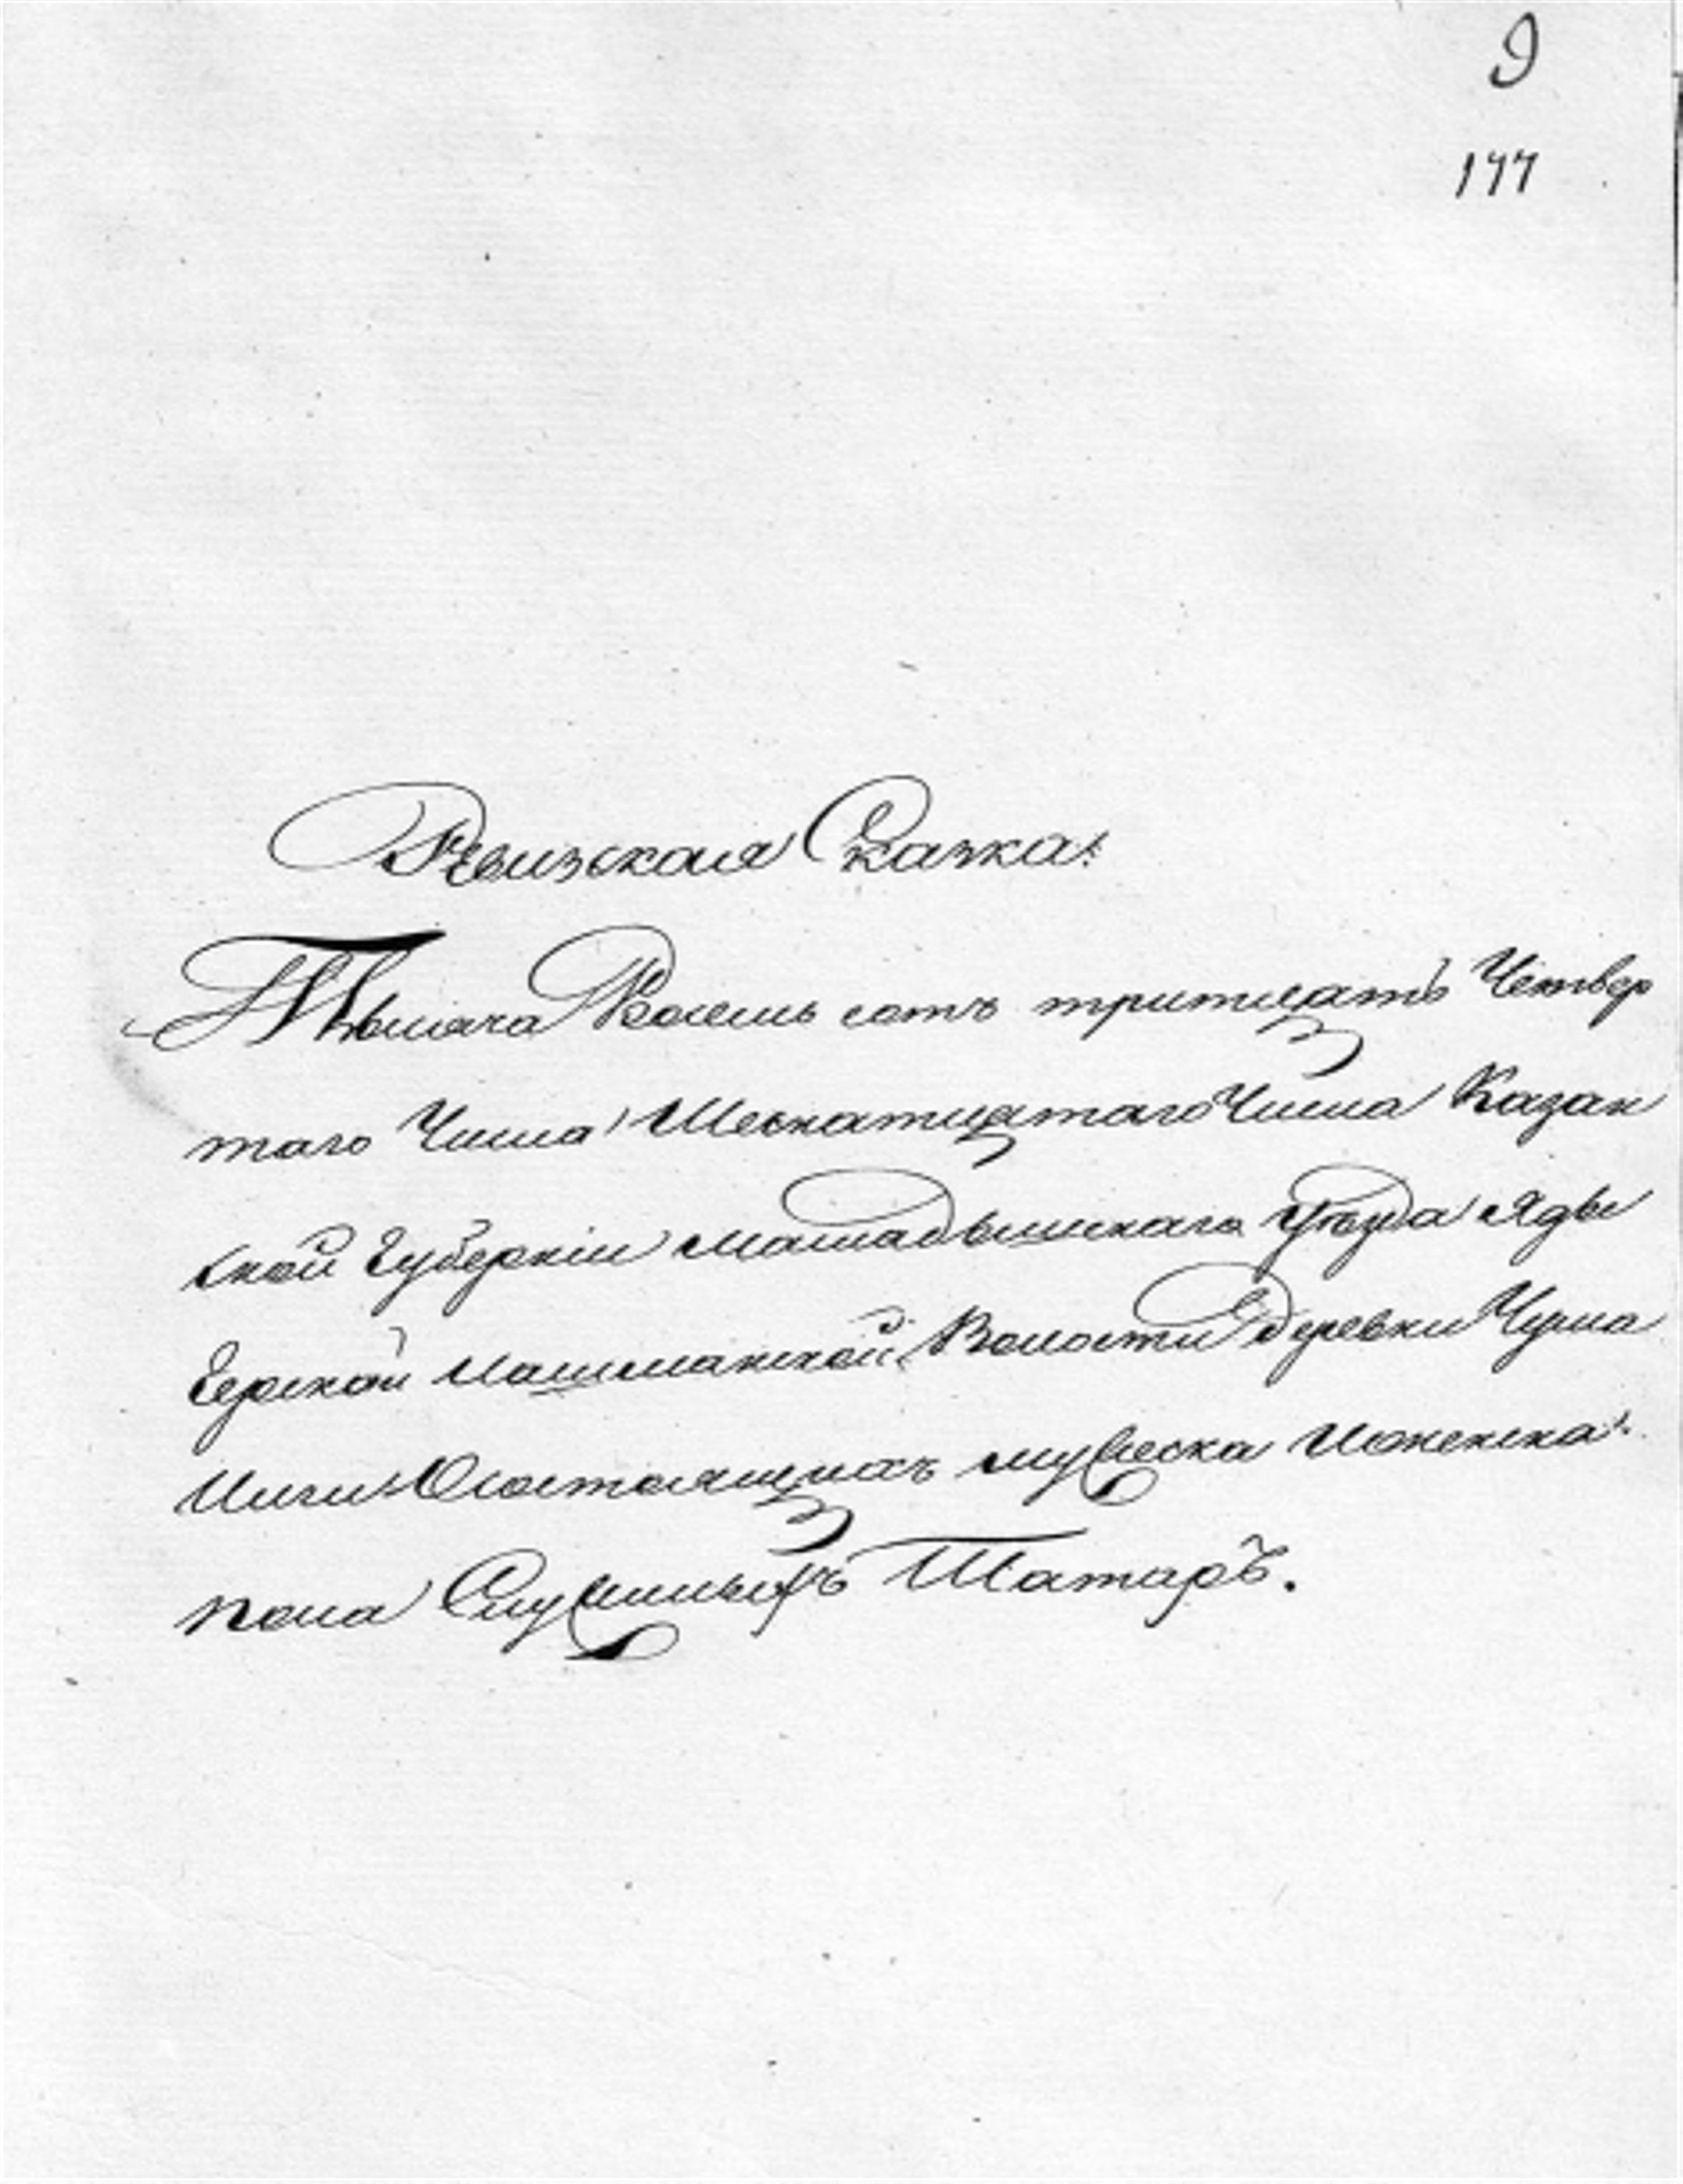 9
177
Ревизская Сказка:
Тысяча Восемь сотъ тритцать Четвер
таго Числа Шеснатцятаго Числа Казан
ской Губерніи Мамадышскаго Уѣзда Яды
герской Лашманской Волости Деревни Чума
Состоящихъ мужеска Иженска
пола Служилыхъ Татаръ.